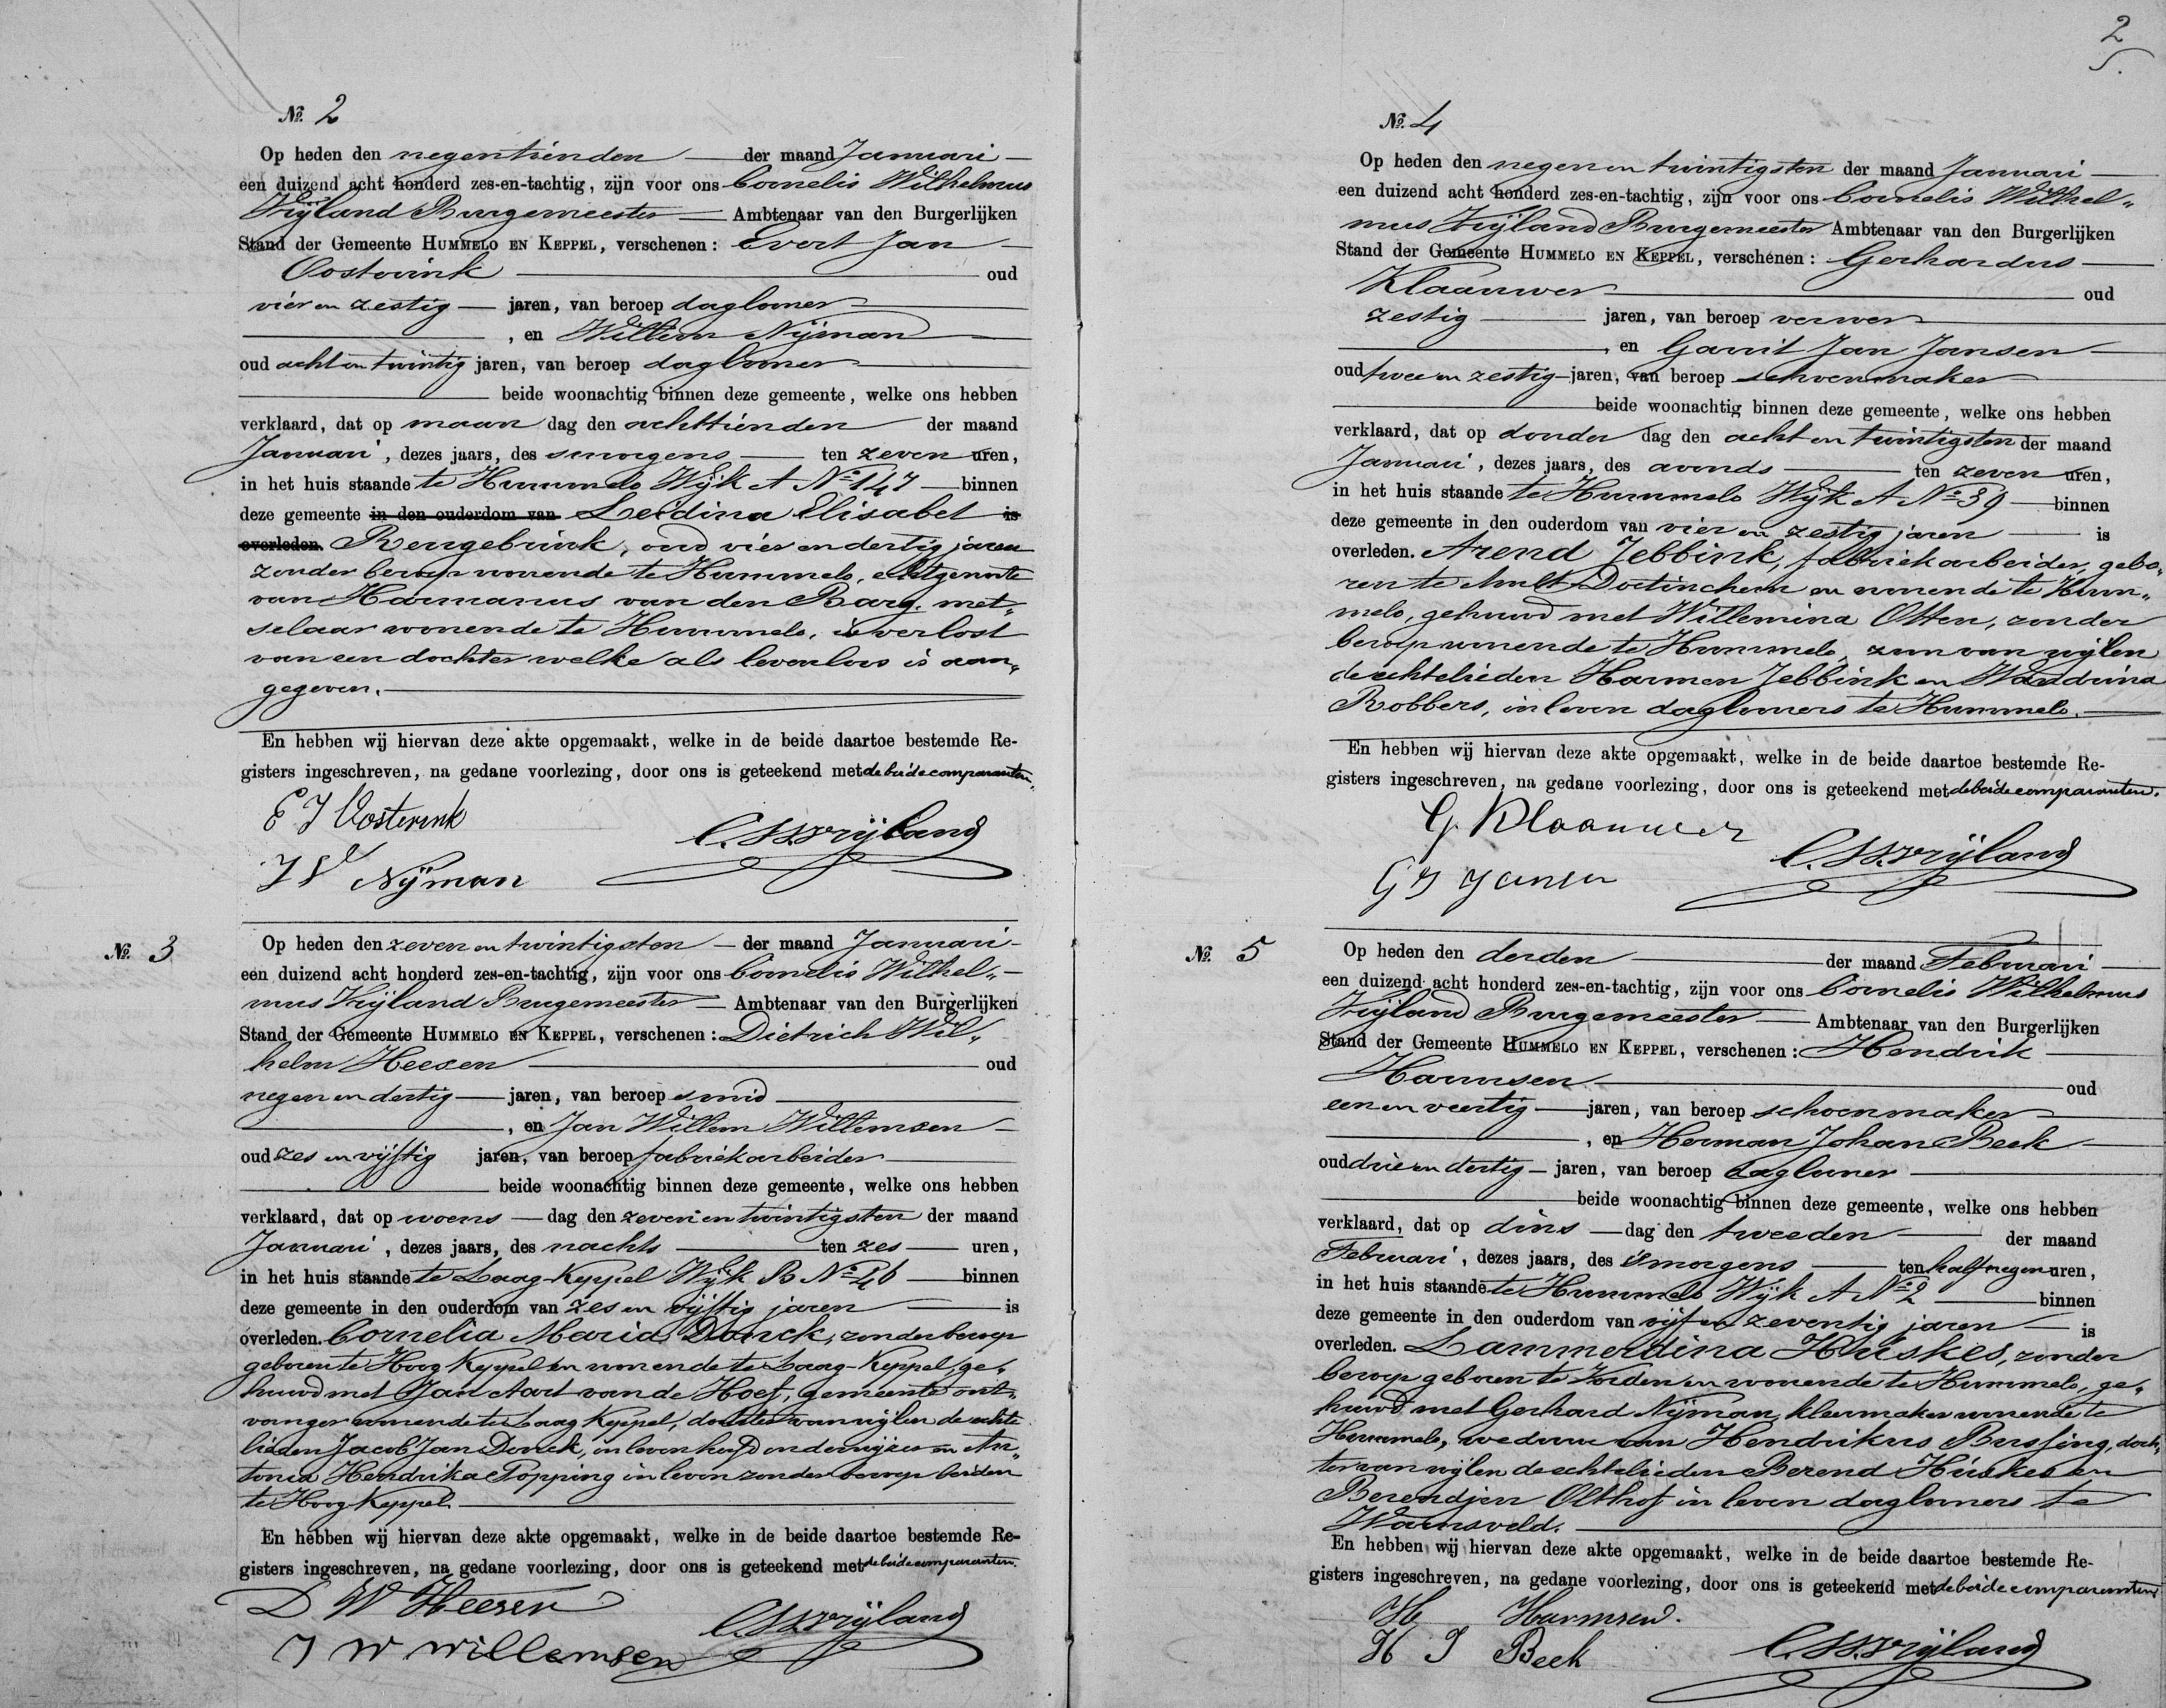 No. 2
Op heden den negentienden der maand Januari
een duizend acht honderd zes-en-tachtig, zijn voor ons Cornelis Wilhelmus
Vrijland Burgemeester Ambtenaar van den Burgerlijken
Stand der Gemeente HUMMELO EN KEPPEL, verschenen: Evert Jan
Oosterink oud
vier en zestig jaren, van beroep daglooner
, en Willem Nijman
oud acht en twintig jaren, van beroep daglooner
beide woonachtig binnen deze gemeente, welke ons hebben
verklaard, dat op maan dag den achttienden der maand
Januari, dezes jaars, des smorgens ten zeven uren,
in het huis staande te Hummelo Wijk A No 147 binnen
deze gemeente in den ouderdom van Leidina Elisabet is
overleden. Rengebrink, oud vier en dertig jaren
zonder beroep wonende te Hummelo, echtgenoote
van Harmanus van den Barg, met„
selaar wonende te Hummelo, is verlost
van een dochter welke als levenloos is aan„
gegeven.
En hebben wij hiervan deze akte opgemaakt, welke in de beide daartoe bestemde Re-
gisters ingeschreven, na gedane voorlezing, door ons is geteekend met de beide comparanten.
E J Oosterink
C.W.Vrijland
W Nijman
No. 3
Op heden den zeven en twintigsten der maand Januari
een duizend acht honderd zes-en-tachtig, zijn voor ons Cornelis Wilhel„
mus Vrijland Burgemeester Ambtenaar van den Burgerlijken
Stand der Gemeente HUMMELO EN KEPPEL, verschenen: Dietrich Wil„
helm Heesen oud
negen en dertig jaren, van beroep smid
, en Jan Willem Willemsen
oud zes en vijftig jaren, van beroep fabriekarbeider
beide woonachtig binnen deze gemeente, welke ons hebben
verklaard, dat op woens dag den zeven en twintigsten der maand
Januari, dezes jaars, des nachts ten zes uren,
in het huis staande te Laag-Keppel Wijk B No 46 binnen
deze gemeente in den ouderdom van zes en vijftig jaren is
overleden. Cornelia Maria Donck, zonder beroep
geboren te Hoog Keppel en wonende te Laag-Keppel, ge„
huwd met Jan Aart van de Hoef, gemeente ont„
vanger wonende te Laag Keppel, dochter van wijlen de echte
lieden Jacob Jan Donck, in leven hoofdonderwijzer en An„
tonia Hendrika Popping in leven zonder beroep beiden
te Hoog Keppel.
En hebben wij hiervan deze akte opgemaakt, welke in de beide daartoe bestemde Re-
gisters ingeschreven, na gedane voorlezing, door ons is geteekend met de beide comparanten.
D W Heesen
C.W.Vrijland
J W Willemsen
2
No. 4
Op heden den negen en twintigsten der maand Januari
een duizend acht honderd zes-en-tachtig, zijn voor ons Cornelis Wilhel„
mus Vrijland Burgemeester Ambtenaar van den Burgerlijken
Stand der Gemeente HUMMELO EN KEPPEL, verschenen: Gerhardus
Klaauwer oud
zestig jaren, van beroep verwer
, en Garrit Jan Jansen
oud twee en zestig jaren, van beroep schoenmaker
beide woonachtig binnen deze gemeente, welke ons hebben
verklaard, dat op donder dag den acht en twintigsten der maand
Januari, dezes jaars, des avonds ten zeven uren,
in het huis staande te Hummelo Wijk A No 39 binnen
deze gemeente in den ouderdom van vier en zestig jaren is
overleden. Arend Jebbink, fabriekarbeider, gebo„
ren te Ambt-Doetinchem en wonende te Hum„
melo, gehuwd met Willemina Otten, zonder
beroep wonende te Hummelo, zoon van wijlen
de echtelieden Harmen Jebbink en Wandrina
Robbers, in leven daglooners te Hummelo.
En hebben wij hiervan deze akte opgemaakt, welke in de beide daartoe bestemde Re-
gisters ingeschreven, na gedane voorlezing, door ons is geteekend met de beide comparanten.
G. Klaauwer
C.W.Vrijland
G J Jansen
No. 5
Op heden den derden der maand Februari
een duizend acht honderd zes-en-tachtig, zijn voor ons Cornelis Wilhelmus
Vrijland Burgemeester Ambtenaar van den Burgerlijken
Stand der Gemeente HUMMELO EN KEPPEL, verschenen: Hendrik
Harmsen oud
een en veertig jaren, van beroep schoenmaker
, en Herman Johan Beek
oud drie en dertig jaren, van beroep daglooner
beide woonachtig binnen deze gemeente, welke ons hebben
verklaard, dat op dins dag den tweeden der maand
Februari, dezes jaars, des smorgens ten half negen uren,
in het huis staande te Hummelo Wijk A No 2 binnen
deze gemeente in den ouderdom van vijf en zeventig jaren is
overleden. Lammerdina Huskes, zonder
beroep geboren te Vorden en wonende te Hummelo, ge„
huwd met Gerhard Nijman, kleermaker wonende te
Hummelo, weduwe van Hendrikus Bussing, doch„
ter van wijlen de echtelieden Berend Húskes en
Berendjen Olthof in leven daglooners te
Warnsveld.
En hebben wij hiervan deze akte opgemaakt, welke in de beide daartoe bestemde Re-
gisters ingeschreven, na gedane voorlezing, door ons is geteekend met de beide comparanten
H Harmsen.
H J Beek
C.W.Vrijland